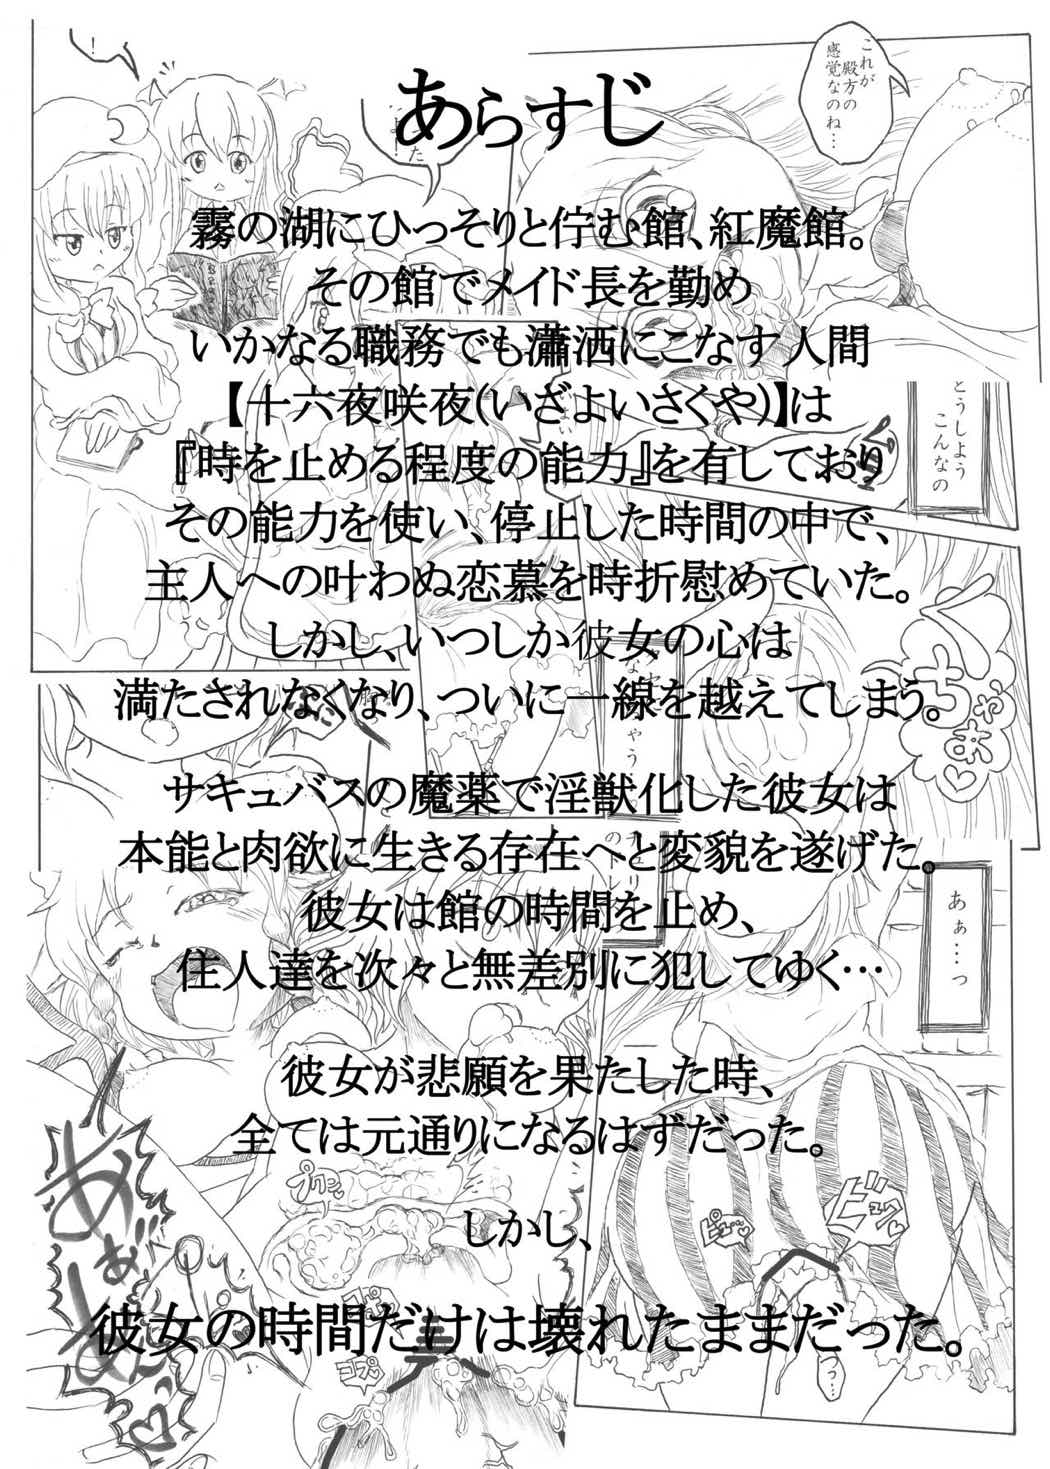 あらすじ
霧の湖にひっそりと佇む館、紅魔館。
その館でメイド長を勤め
いかなる職務でも瀟洒にこなす人間
【十六夜咲夜(いざよいさくや)】は
『時を止める程度の能力』を有しており
その能力を使い、停止した時間の中で、
主人への叶わぬ恋慕を時折慰めていた。
しかし、いつしか彼女の心は
満たされなくなり、ついに一線を越えてしまう。
サキュバスの魔薬で淫獣化した彼女は
本能と肉欲に生きる存在へと変貌を遂げた。
彼女は館の時間を止め、
住人達を次々と無差別に犯してゆく…
彼女が悲願を果たした時、
全ては元通りになるはずだった。
しかし、
彼女の時間だけは壊れたままだった。
これが
殿方の
感覚なのね…
どうしよう
こんなの
くちゃぁ♡
あぁ…っ
プクン
ビュク♡
ピュッ
コプ
っ…
！